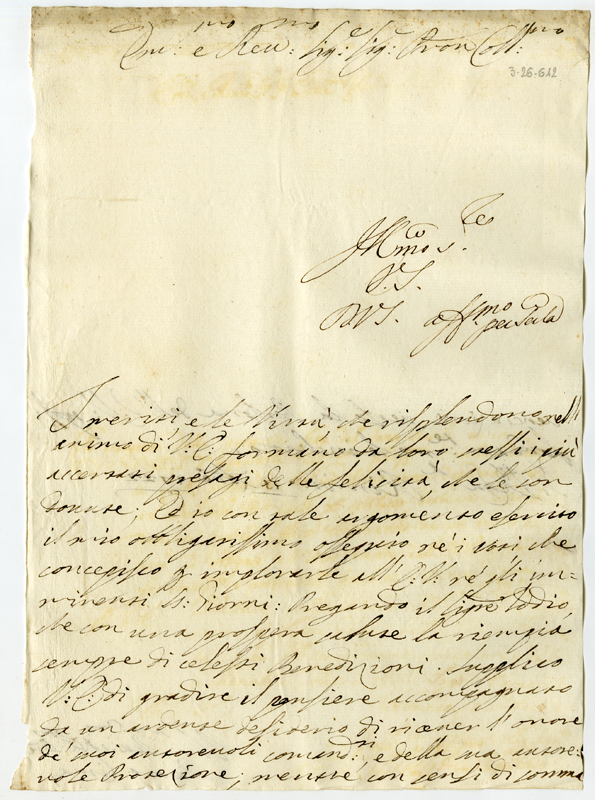 Em: e Rev: Sig:e Sig:e Pron Coll:mo
3-26-612
D V S. aff:mo
I meriti e le Virtù, che risplendono nell'
animo di V: E: formano da loro stessi i più
accertati presagi delle felicità, che le son
dovute; Ed io con tale argomento esercito
il mio obbligatissimo ossequio ne' i voti che
concepisco p implorarle all' E: V: ne gli im=
minenti S: Giorni: Pregando il Sigre Iddio,
che con una prospera salute la riempia
sempre di celesti Benedizioni. Supplico
V: E: di gradire il pensiere accompagnato
da un ardente desiderio di ricever l'onore
de' suoi autorevoli comand:ti, e della sua autore=
vole Protezione; mentre con sensi di somma